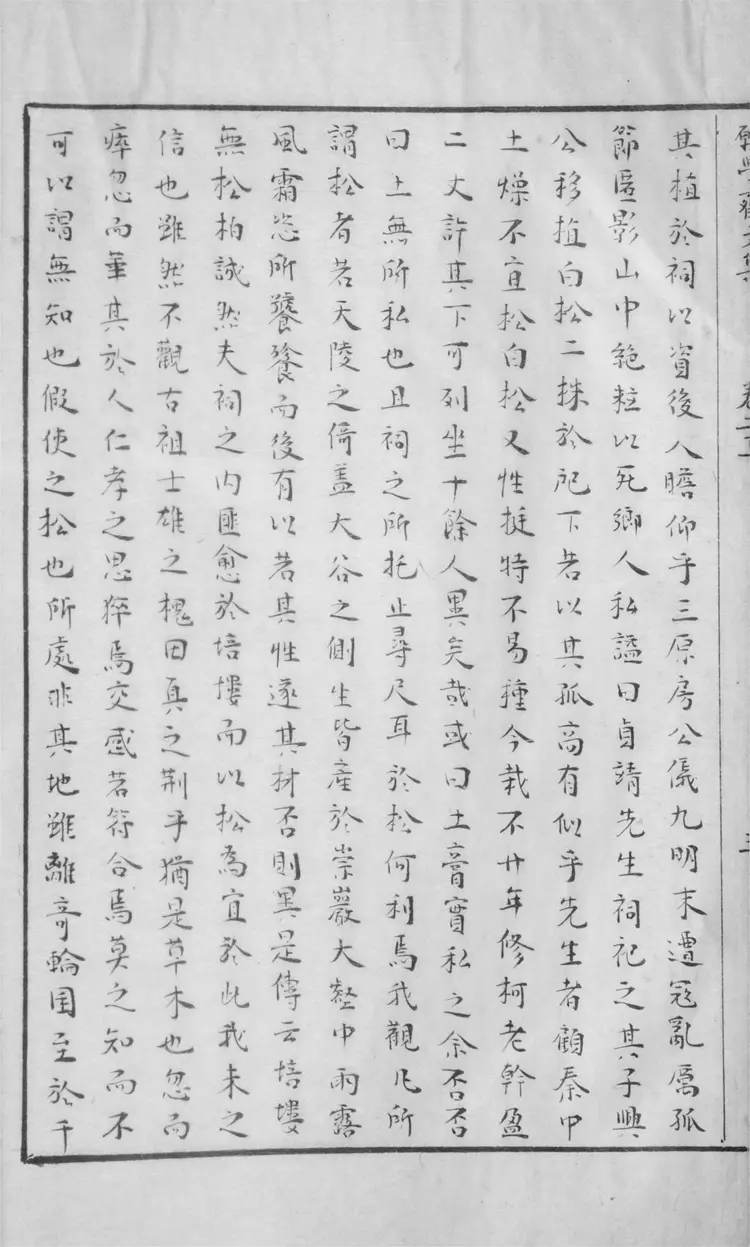 學齋文集 卷二 三
其植於祠以資後人瞻仰乎三原房公儀九明末遭寇亂厲孤
節匿影山中絶粒以死鄉人私諡曰貞靖先生祠祀之其子興
公移植白松二株於祀下若以其孤高有似乎先生者顧秦中
土燥不宜松白松又性挺特不易種今栽不廿年修柯老幹盈
二丈許其下可列坐十餘人異矣哉或曰土膏實私之余否否
曰土無所私也且祠之所托止尋尺耳於松何利焉我觀凡所
謂松者若天陵之倚蓋大谷之側生皆產於崇巖大壑中雨露
風霜恣所饕餮而後有以若其性遂其材否則異是傳云培塿
無松柏誠然夫祠之内匪愈於培塿而以松為宜於此我未之
信也雖然不觀古祖士雄之槐田真之荆乎猶是草木也忽而
瘁忽而華其於人仁孝之思猝焉交感若符合焉莫之知而不
可以謂無知也假使之松也所處非其地雖離奇輪囷至於千